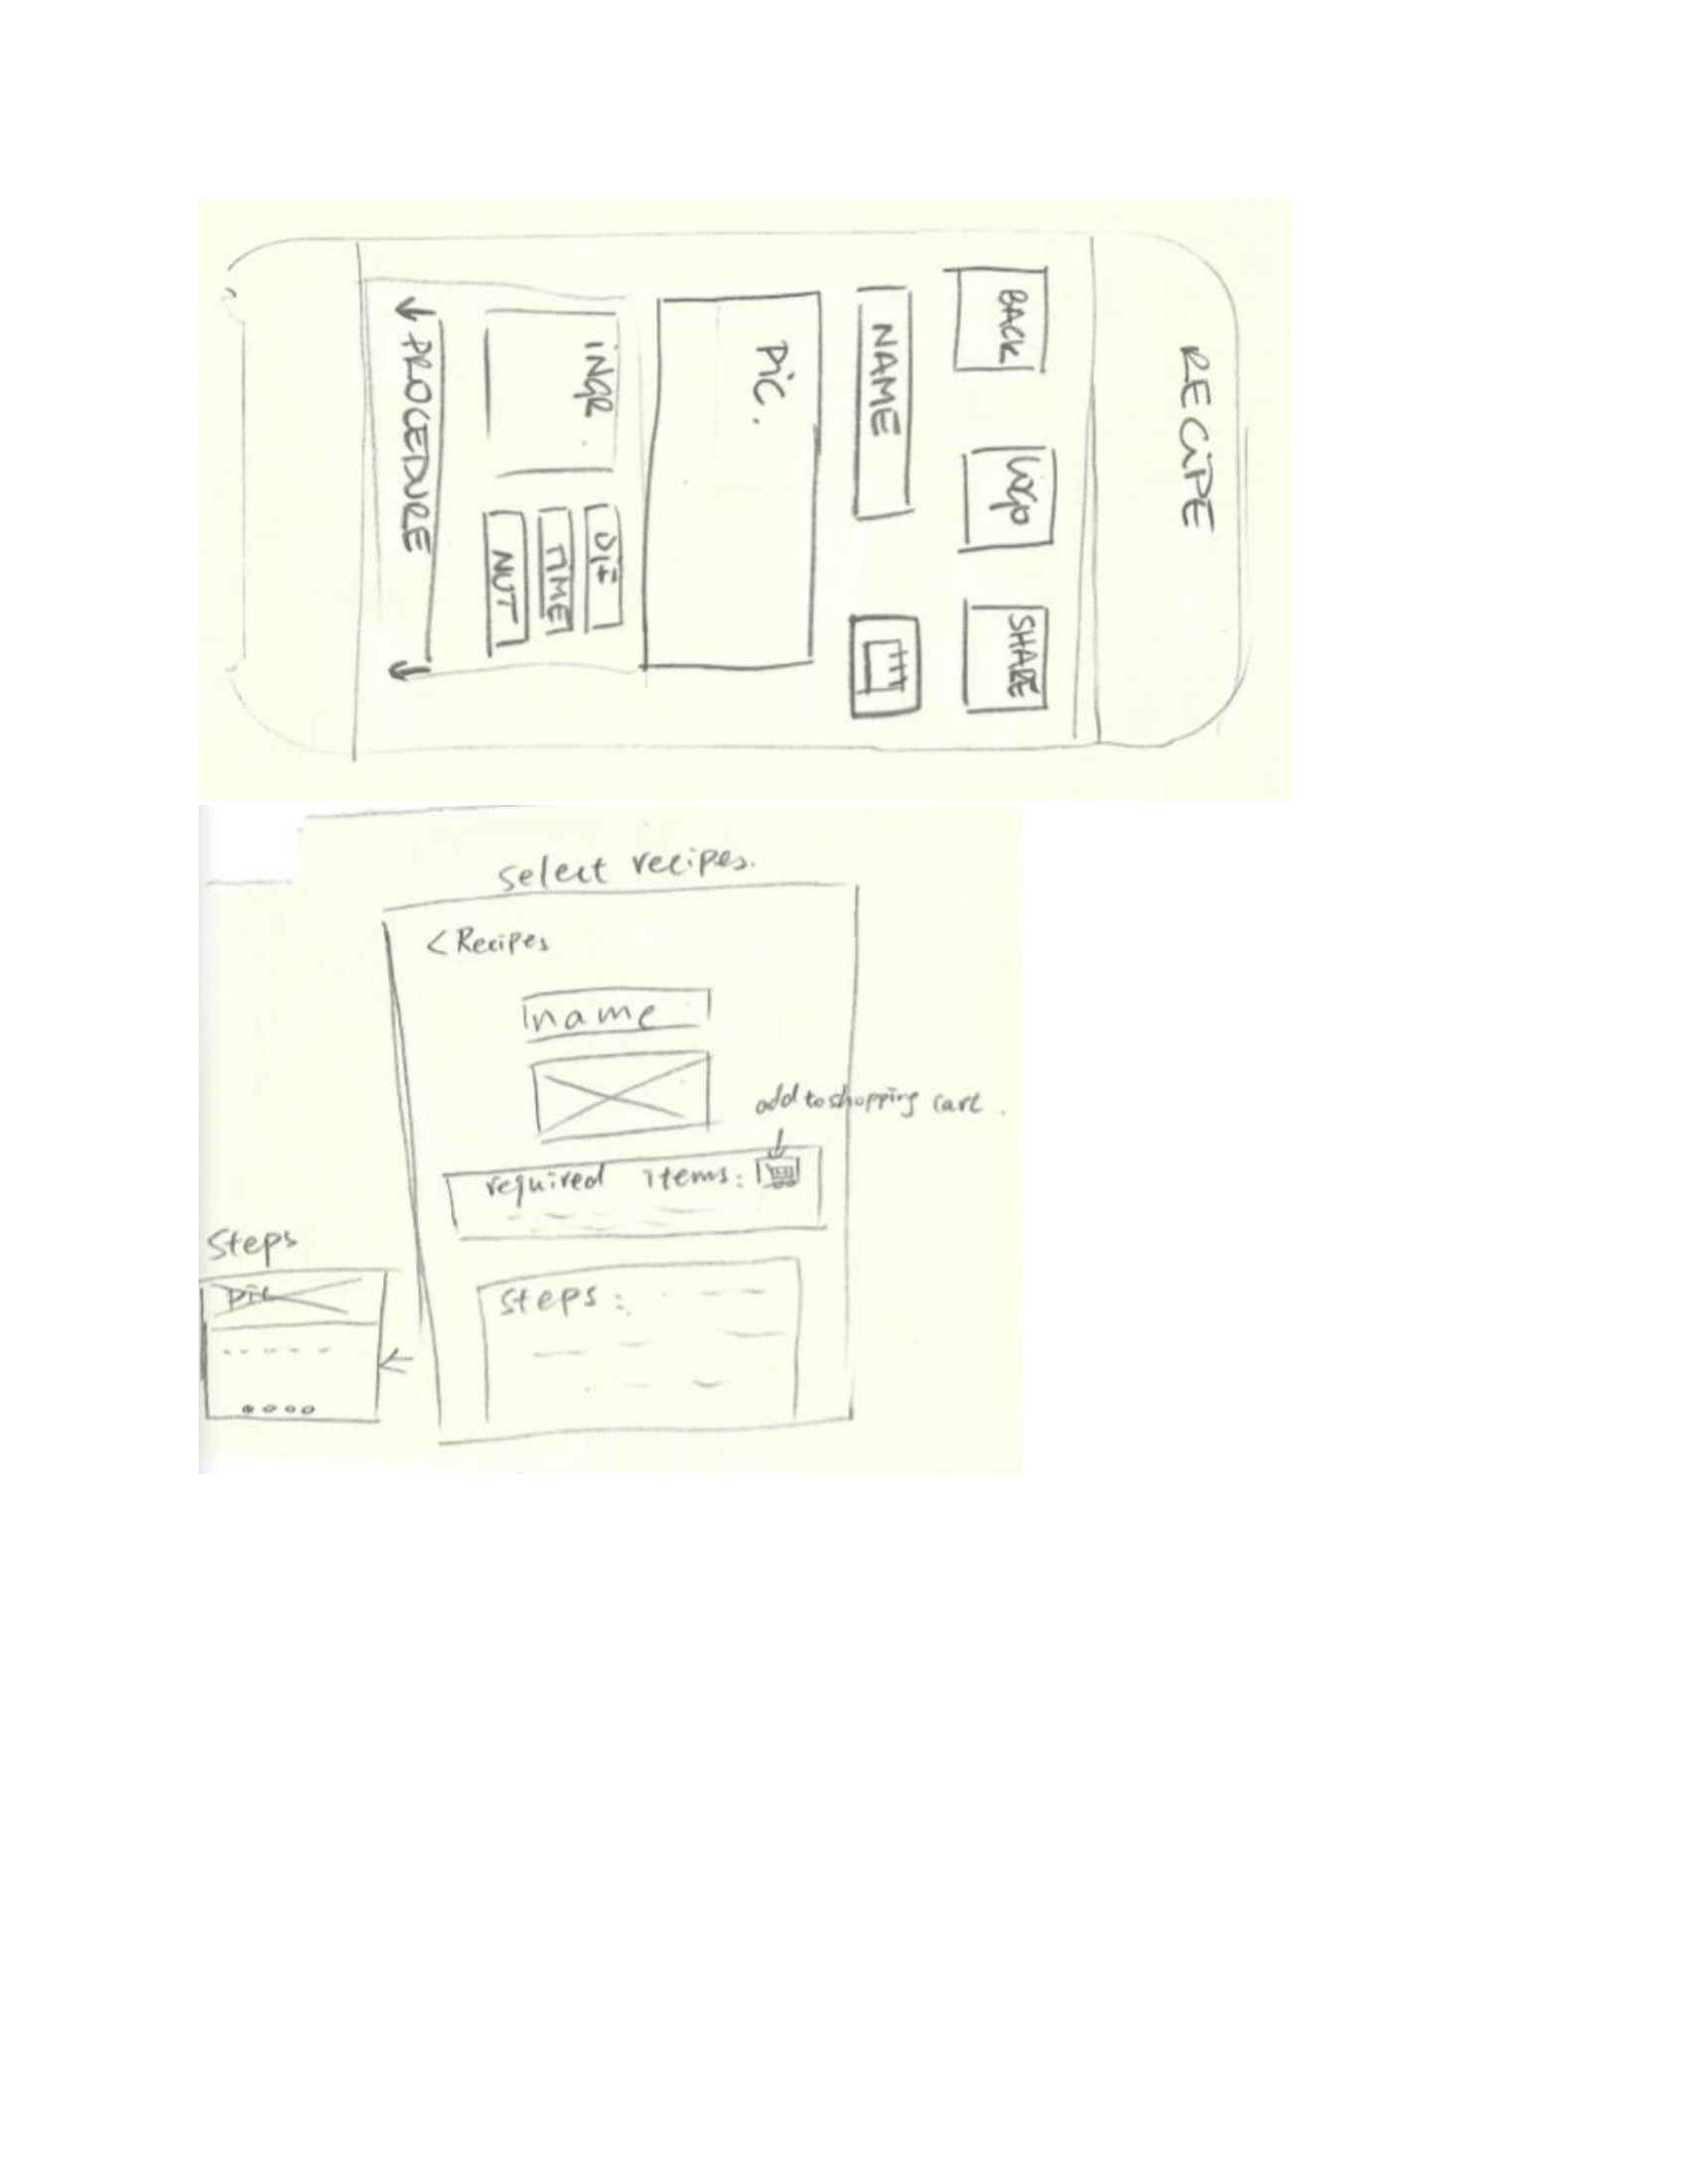 RECiPE
BACK
Logo
SHARE
NAME
PiC.
iNGR
DIF
TIME
NUT
PROCEDURE
select recipes.
< Recipes
name
add to shopping cart.
required items:
steps:
Steps
pic